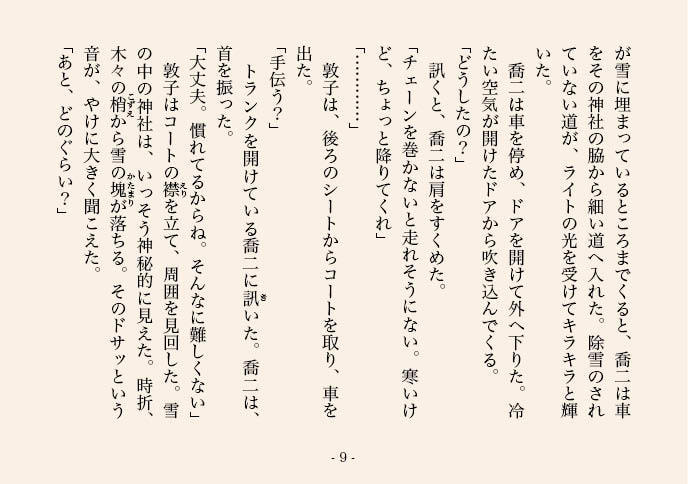 が雪に埋まっているところまでくると、喬二は車
をその神社の脇から細い道へ入れた。除雪のされ
ていない道が、ライトの光を受けてキラキラと輝
いた。
　喬二は車を停め、ドアを開けて外へ下りた。冷
たい空気が開けたドアから吹き込んでくる。
「どうしたの？」
　訊くと、喬二は肩をすくめた。
「チェーンを巻かないと走れそうにない。寒いけ
ど、ちょっと降りてくれ」
「…………」
　敦子は、後ろのシートからコートを取り、車を
出た。
「手伝う？」
　トランクを開けている喬二に訊いた。喬二は、
首を振った。
「大丈夫。慣れてるからね。そんなに難しくない」
　敦子はコートの襟を立て、周囲を見回した。雪
の中の神社は、いっそう神秘的に見えた。時折、
木々の梢から雪の塊が落ちる。そのドサッという
音が、やけに大きく聞こえた。
「あと、どのぐらい？」
- 9 -